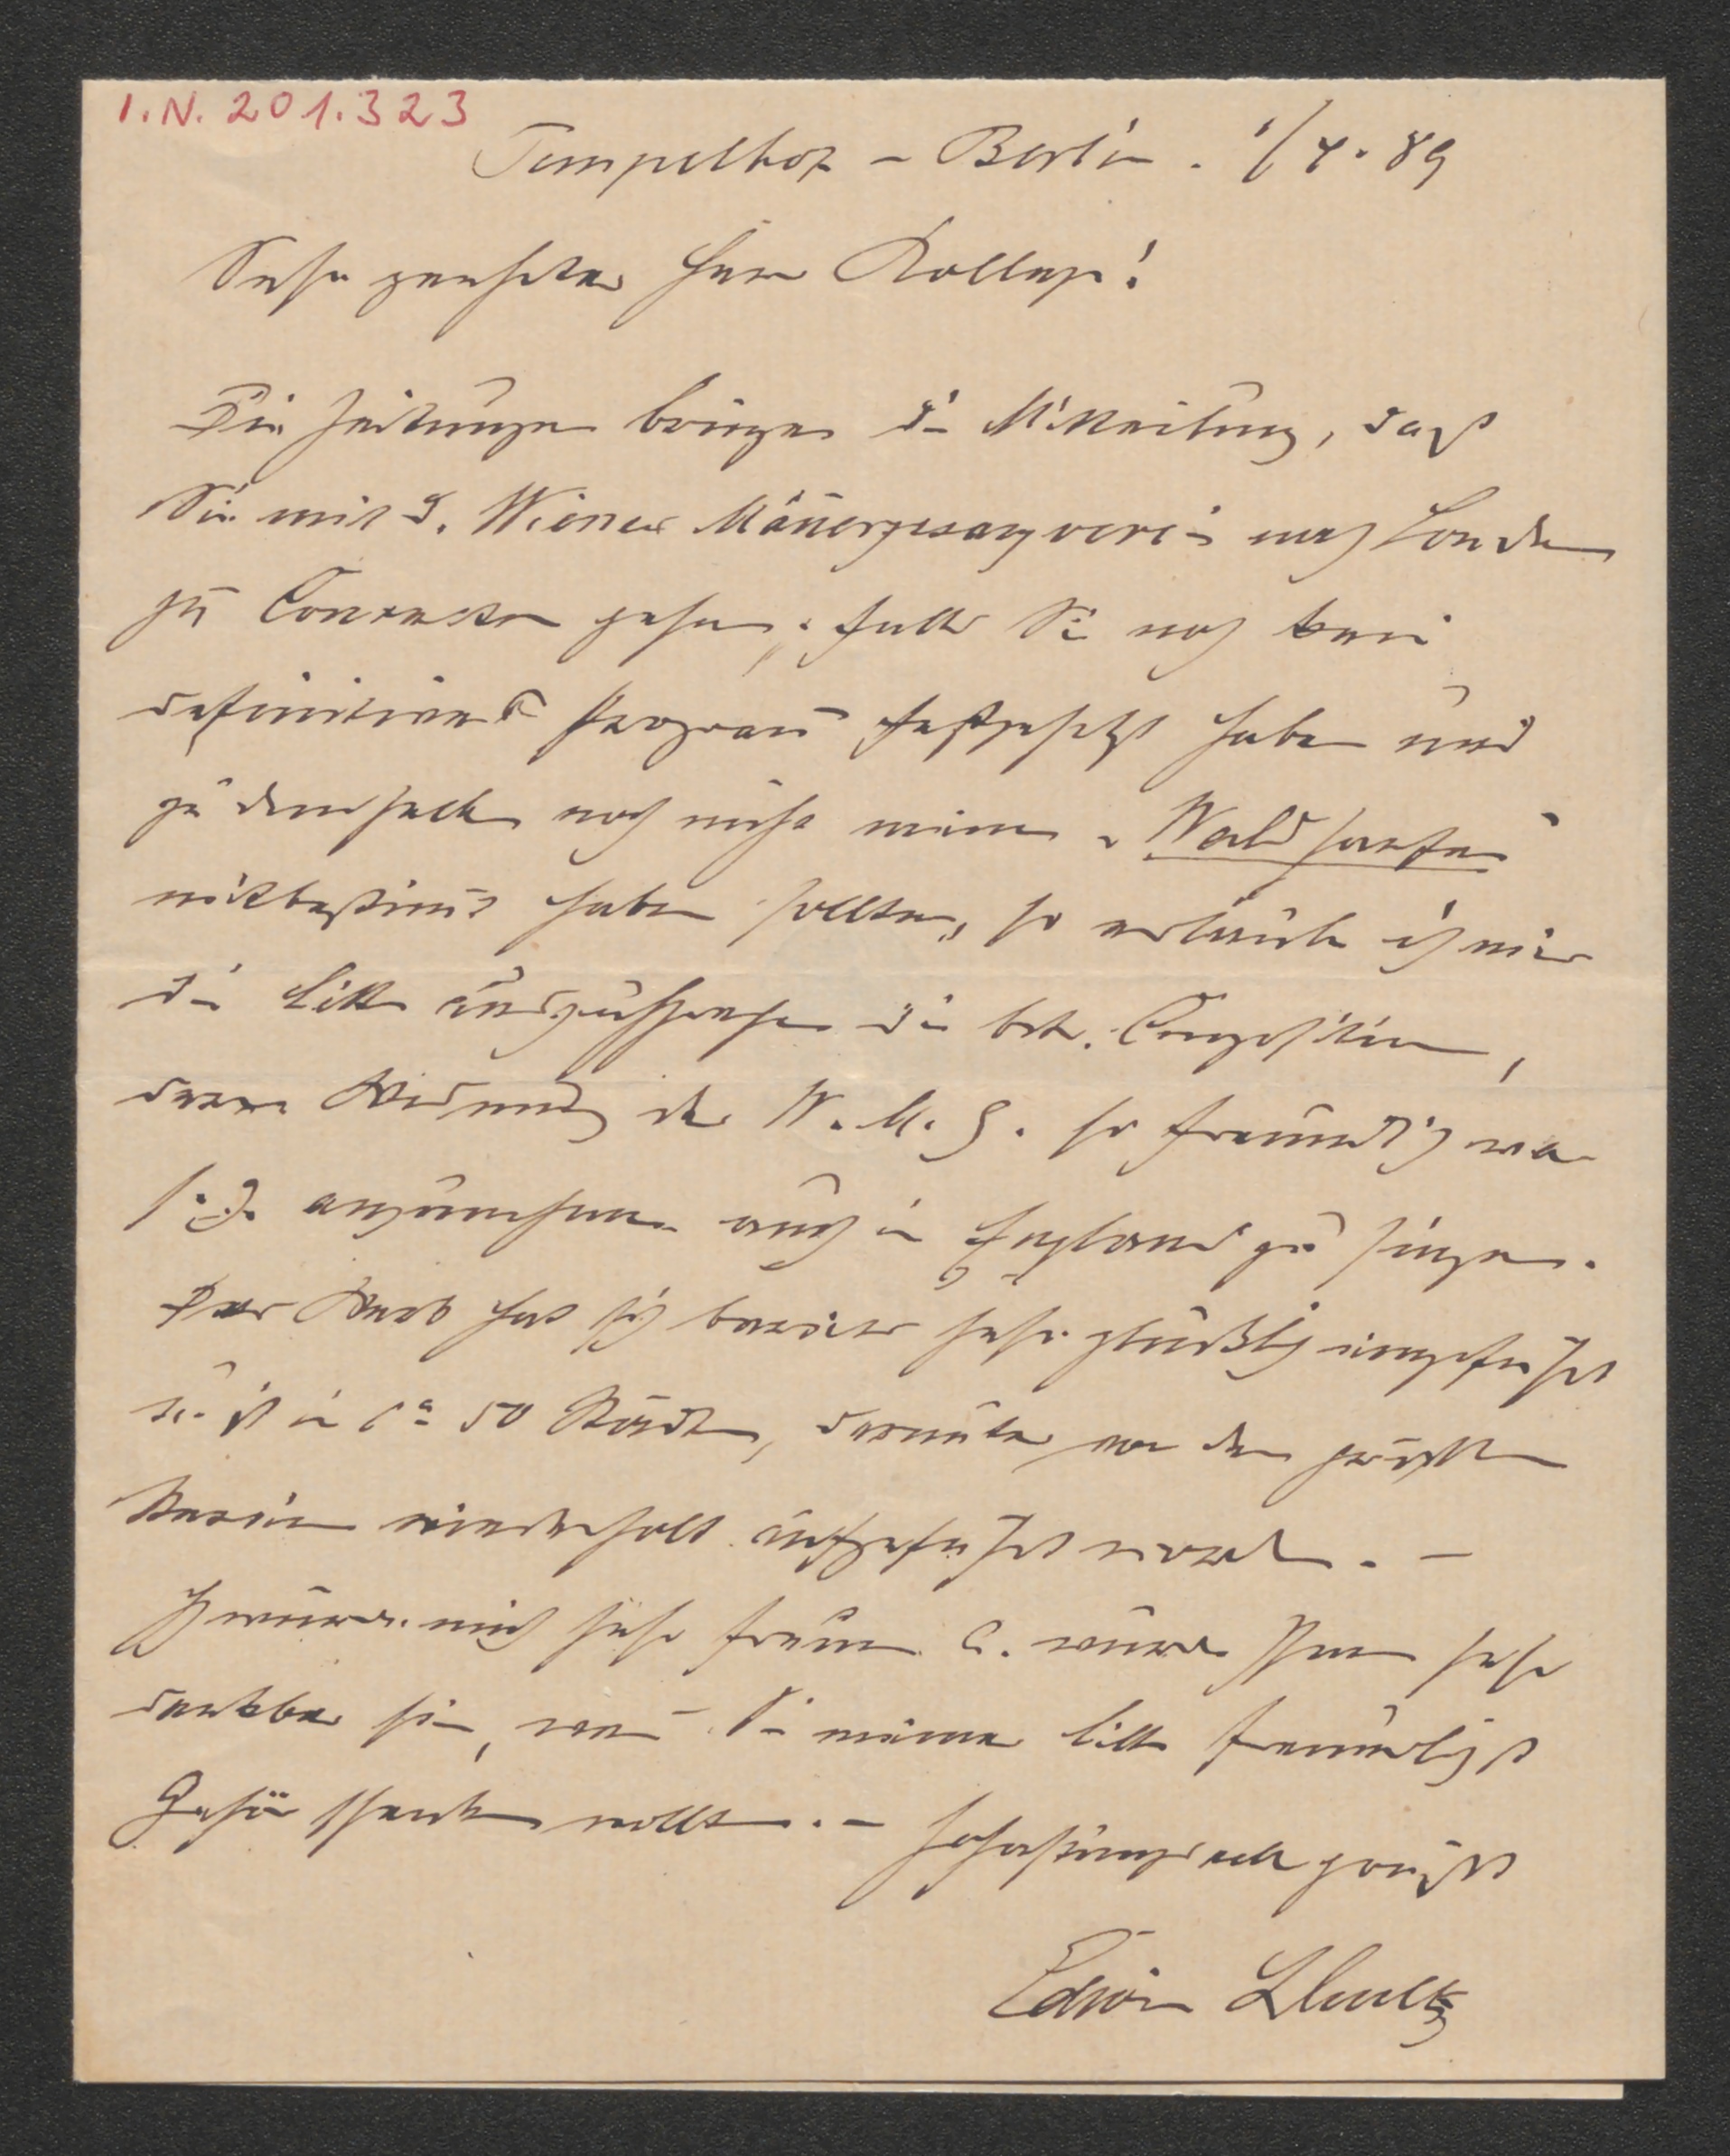 I.N. 201.323
Tempelhof - Berlin. 1/4. 89
Sehr geehrter Herr
Die Zeitungen bringen die Mittheilung, daß
Sie mit d. Wiener Männergesangverein nach London
zu Concerten gehen; falls Sie noch kein
definitives Program̄ festgesetzt haben und
zu demselben noch nicht meine „Waldharfen“
mitbestim̄t haben sollten, so erlaube ich mir
die Bitte auszusprechen die betr. Composition,
deren Widmung der W. M. G. so freundlich war
s. Z. anzunehmen auch in England zu singen.
Der Chor hat sich bereits sehr glücklich eingeführt
u. ist in ca 50 Städten, darunter von den größten
Vereinen wiederholt aufgeführt worden. —
Ich würde mich sehr freuen u. würde Ihnen sehr
dankbar sein, wen̄ Sie meiner Bitte freundlichst
Gehör schenken wollten. — Hochachtungsvoll grüßt
Edwin Schultz